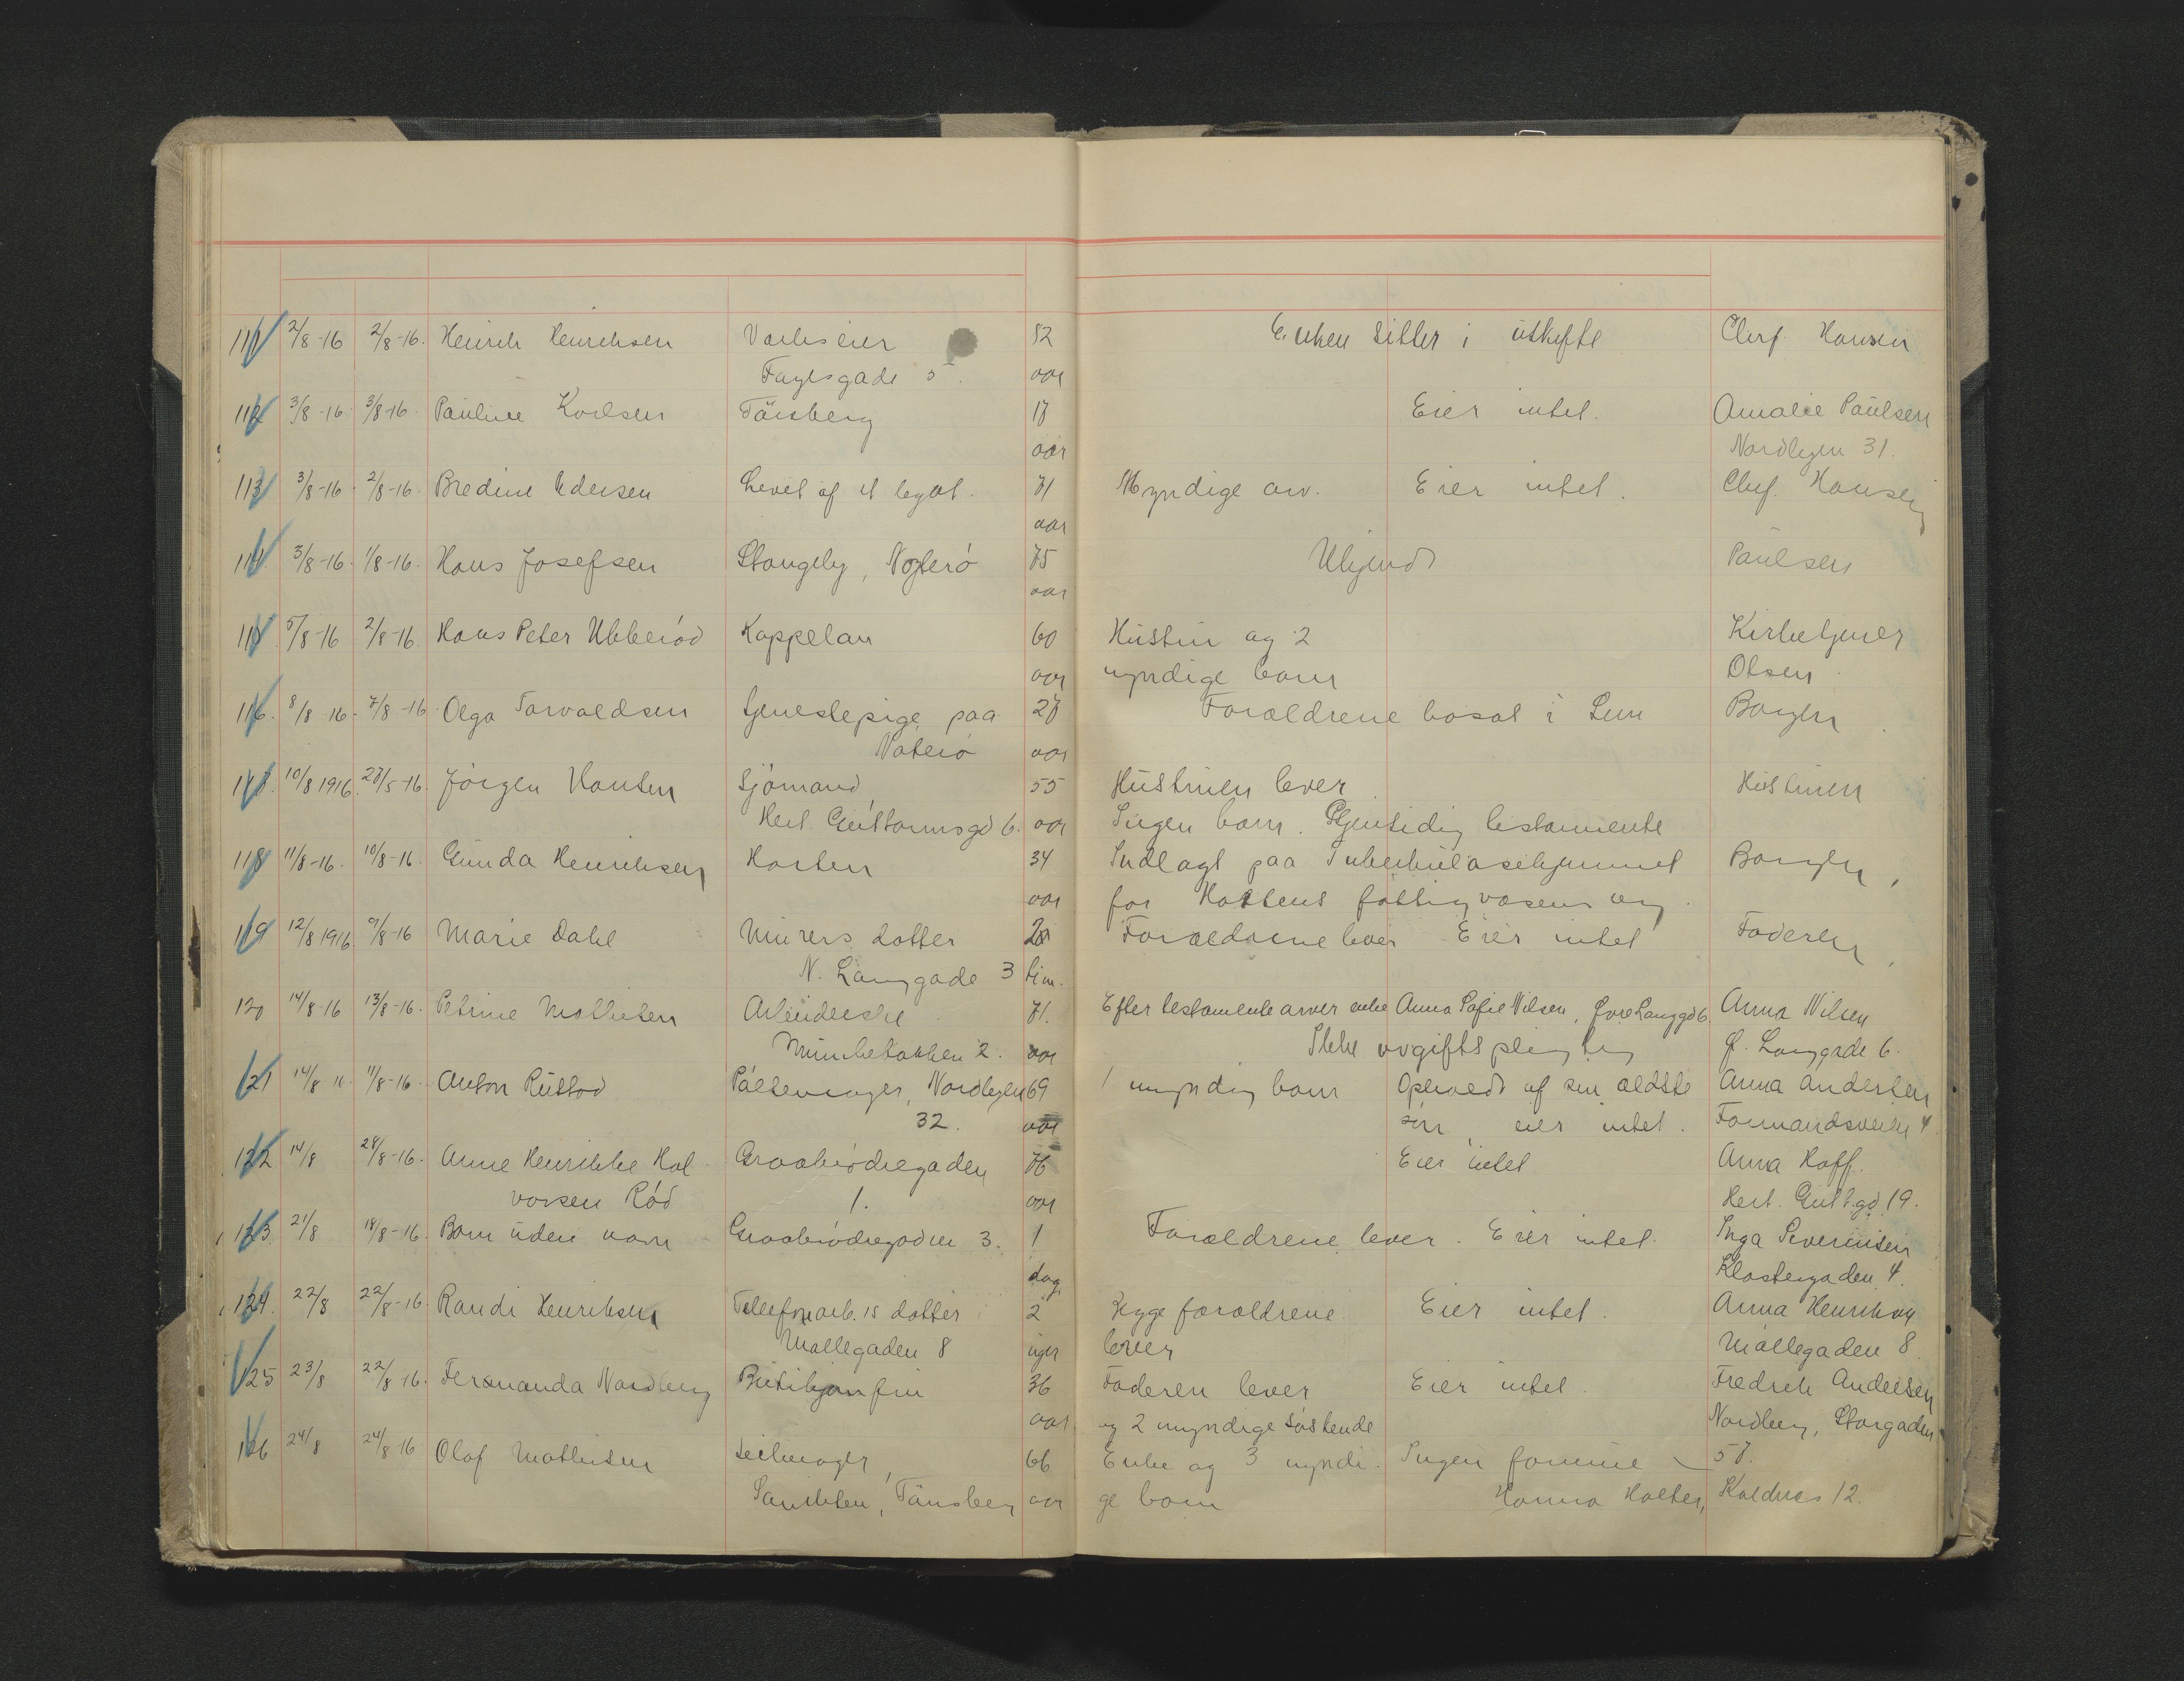 111 2/8-16 2/8-16. Henrik Henriksen Værkseier 82 Enken sitter i uskifte Chrf. Hansen
Fayesgade 5. aar
112 3/8-16 3/8-16 Pauline Karlsen Tönsberg 17 Eier intet. Amalie Paulsen
aar Nordbyen 31.
113 3/8-16 2/8-16 Bredine Edersen Levet af et legat. 71 Myndige arv. Eier intet. Chrf. Hansen
aar
114 3/8-16 1/8-16 Hans Josefsen Stangeby, Nøterö 75 Ukjendt Paulsen
aar
115 5/8-16 2/8-16 Hans Peter Ubberöd Kappelan 60 Hustru og 2 Kirketjener
aar myndige barn Olsen
116. 8/8-16 7/8-16 Olga Torvaldsen tjenestepige paa 27 Forældrene bosat i Sem Borgen
Nøterö aar
117. 10/8 1916 27/5-16 Jörgen Hansen Sjömand, 55 Hustruen lever Hustruen
Hert. Guttormsgd 6. aar Ingen barn. Gjensidig testamente
118 11/8-16. 10/8-16. Gunda Henriksen Horten 34 Indlagt paa Tuberkulosehjemmet Borgen
aar for Hortens fattigvæsens regning
119 12/8 1916 9/8-16 Marie Dahl Murers datter 28 Forældrene lever Eier intet Faderen
N. Langgade 3 tim.
120 14/8-16 13/8-16. Petrine Mathisen Arbeiderske 71. Efter testamente arver enke Anna Sofie Nilsen, Øvre Langgd 6. Anna Nilsen
Munkebakken 2. aar Ikke avgiftspligtig Ø. Langgade 6.
121 14/8 16 11/8-16. Anton Rustad Pölsemager, Nordbyen 69 1 myndig barn Opholdt af sin ældste Anna Andersen
32. aar sön, eier intet. Farmandsveien 4
122 14/8 28/8-16. Anne Henrikke Hal Graabrödregaden 76 Eier intet Anna Hoff.
vorsen Röd 1. aar Hert. Gutt.gd 19.
123. 21/8 18/8-16. Barn uden navn Graabrödregaden 3. 1 Forældrene lever. Eier intet. Inga Severinsen
dag Klostergaden 4.
124. 22/8 22/8-16. Randi Henriksen Telefonarb.rs datter 2 Begge forældrene Eier intet. Anna Henriksen
Möllegaden 8 uger lever Möllegaden 8.
125 23/8 22/8 16. Fernanda Nordberg Butikjomfru 36 Faderen lever Eier intet. Fredrik Andersen
aar og 2 myndige söskende Nordberg, Storgaden
126 24/8 24/8 16 Olaf Mathisen Seilmager, 66 Enke og 3 myndi- Ingen formue 57.
Tönsberg aar ge barn Hanna Holter, Kaldnes 12.